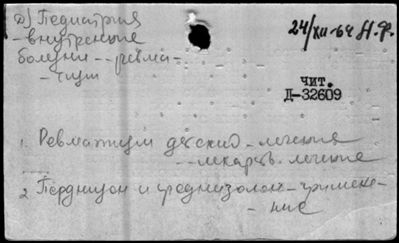 д) Педиатрия
- внутренние
болезни -- ревма-
- тизм
24/XII-64 Н.Ф.
чит.
Д-32609
1. Ревматизм детский - лечение
-- лекарств. лечение
2. Преднизон и преднизолон - примене-
- ние